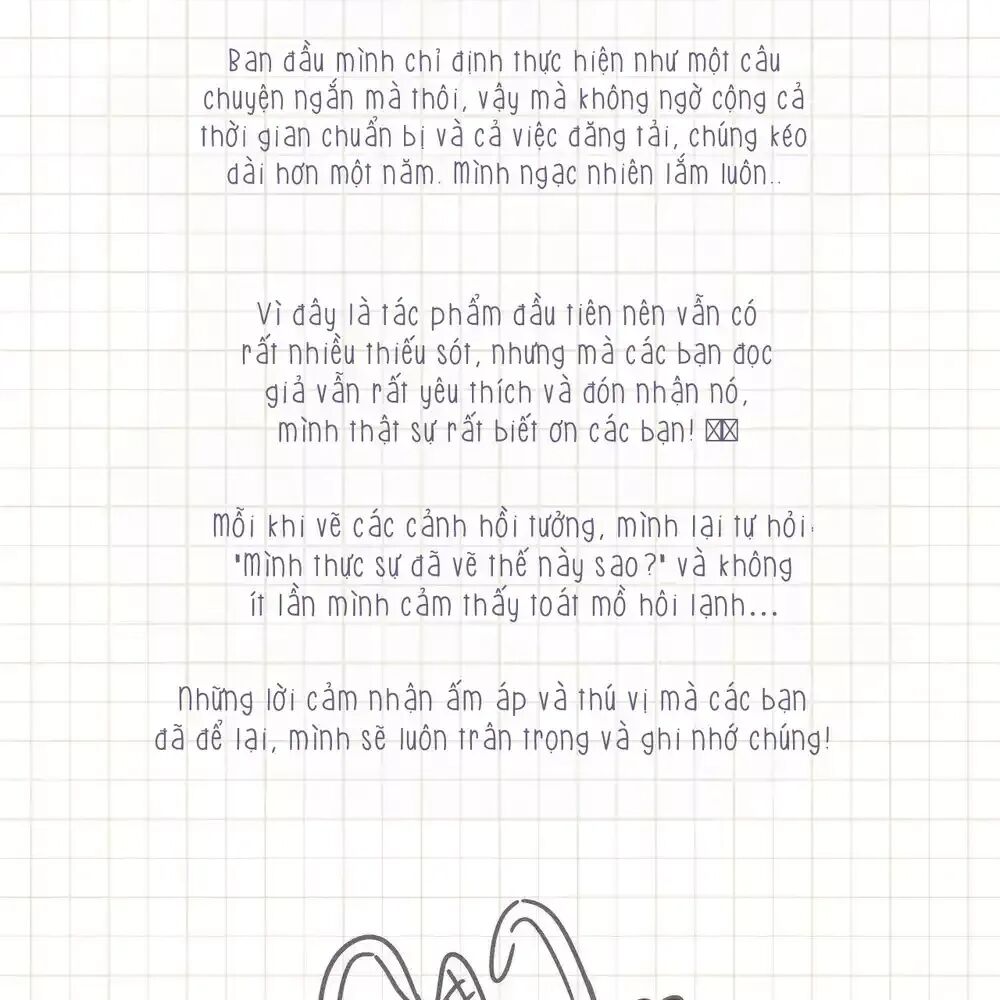 Ban đầu mình chỉ định thực hiện như một câu
chuyện ngắn mà thôi, vậy mà không ngờ cộng cả
thời gian chuẩn bị và cả việc đăng tải, chúng kéo
dài hơn một năm. Mình ngạc nhiên lắm luôn..
Vì đây là tác phẩm đầu tiên nên vẫn có
rất nhiều thiếu sót, nhưng mà các bạn đọc
giả vẫn rất yêu thích và đón nhận nó,
mình thật sự rất biết ơn các bạn!
Mỗi khi vẽ các cảnh hồi tưởng, mình lại tự hỏi:
"Mình thực sự đã vẽ thế này sao?" và không
ít lần mình cảm thấy toát mồ hôi lạnh...
Những lời cảm nhận ấm áp và thú vị mà các bạn
đã để lại, mình sẽ luôn trân trọng và ghi nhớ chúng!